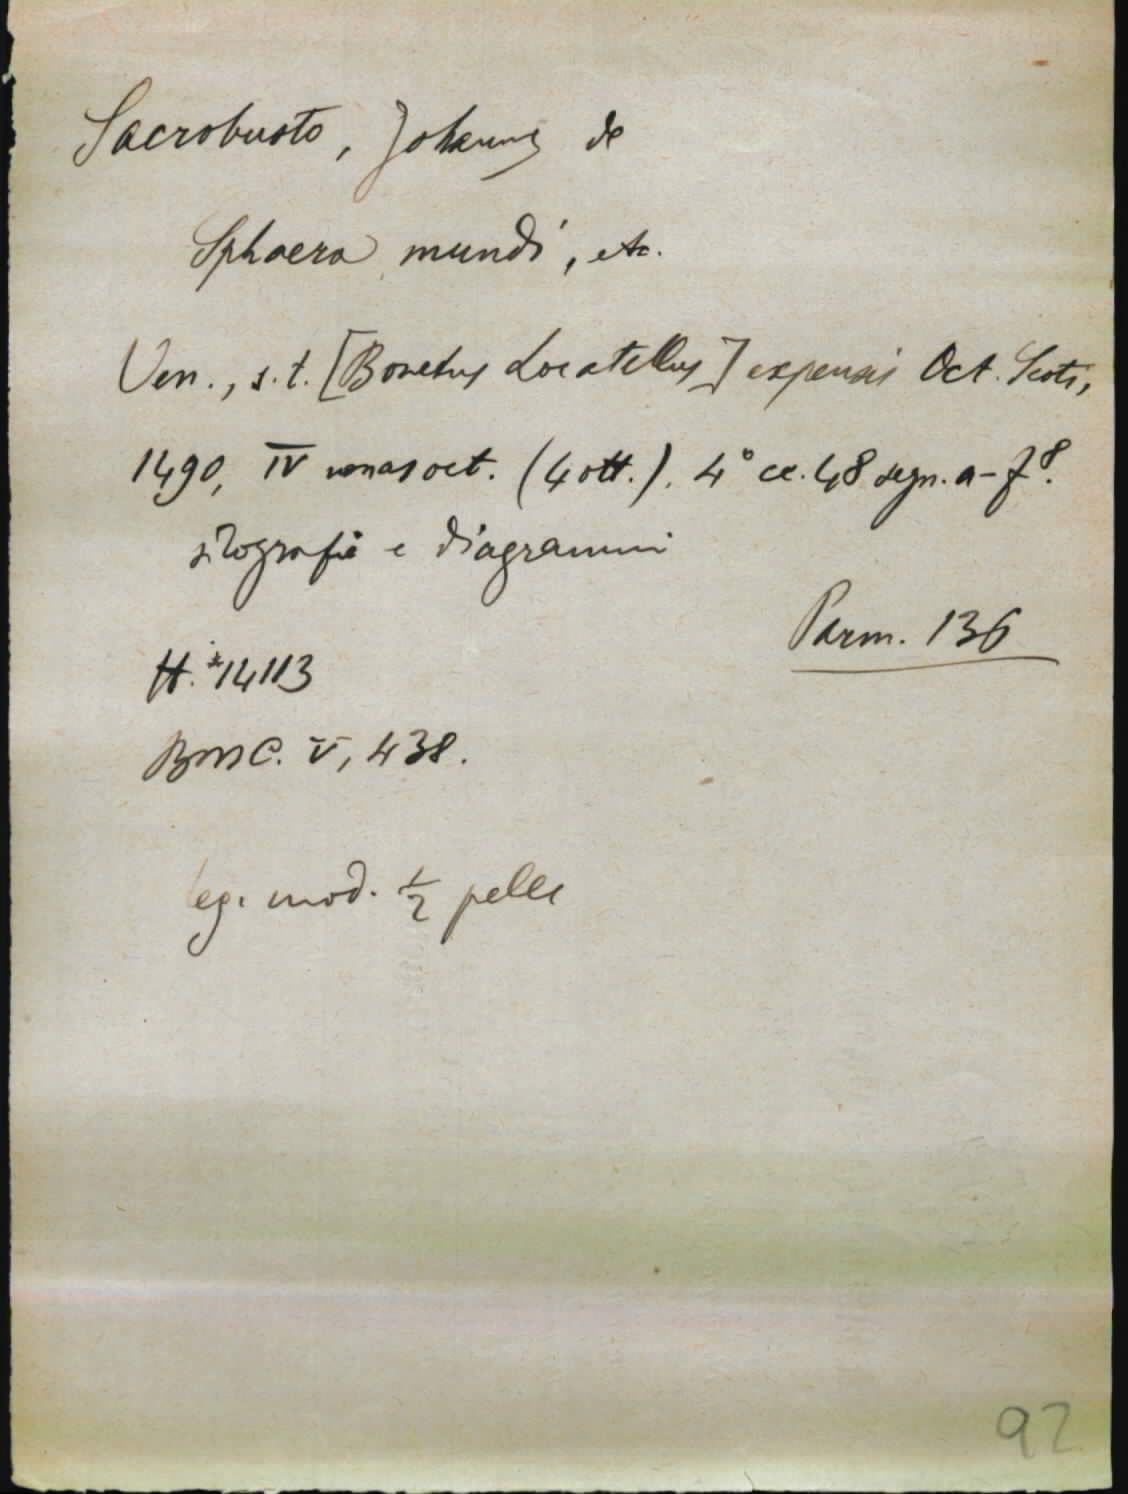 Sacrobusto, Johannes de
Sphaera mundi, etc.
Ven., s.t. [Bonetus Locatellus] expensis Oct. Scoti,
1490, IV nonas oct. (4 ott.). 4° cc. 48 segn. a-f⁸.
silografie e diagrammi
Parm. 136
H. *14113
BMC. V, 438.
leg. mod. ½ pelle
92